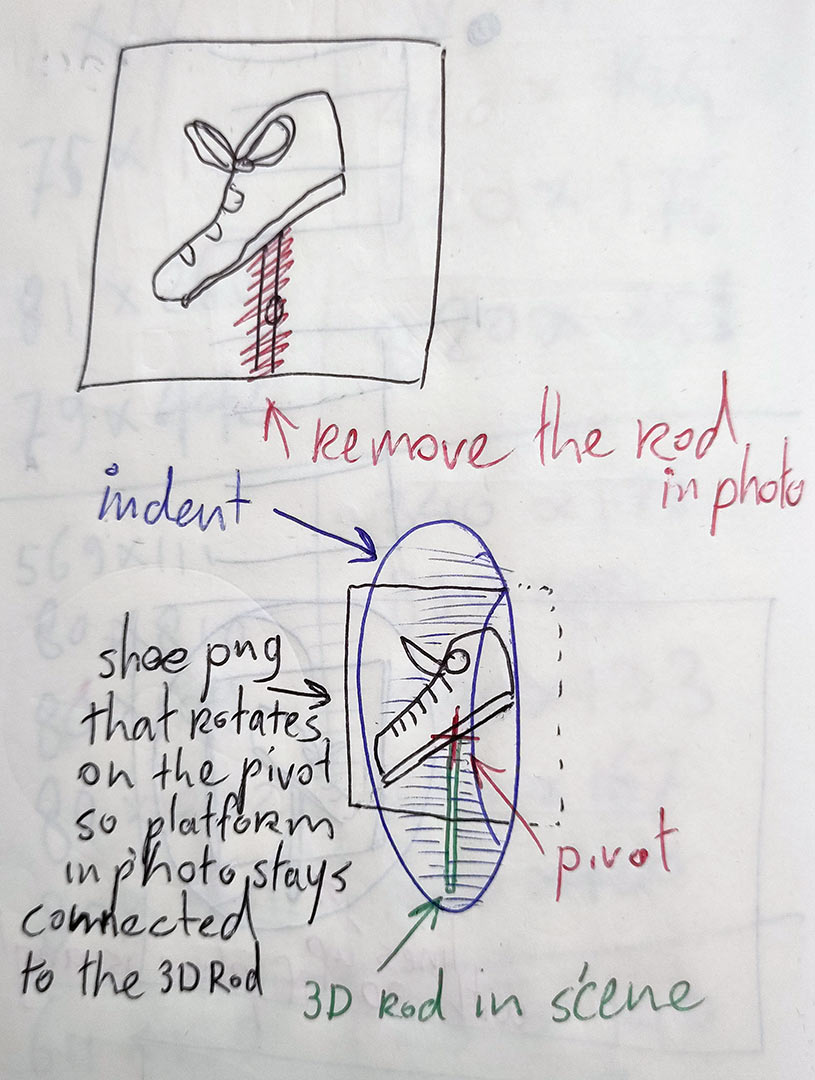 Remove the Rod
in photo
indent
shoe png
that Rotates
on the pivot
so platform
in photo stays
connected
to the 3D Rod
pivot
3D Rod in scene